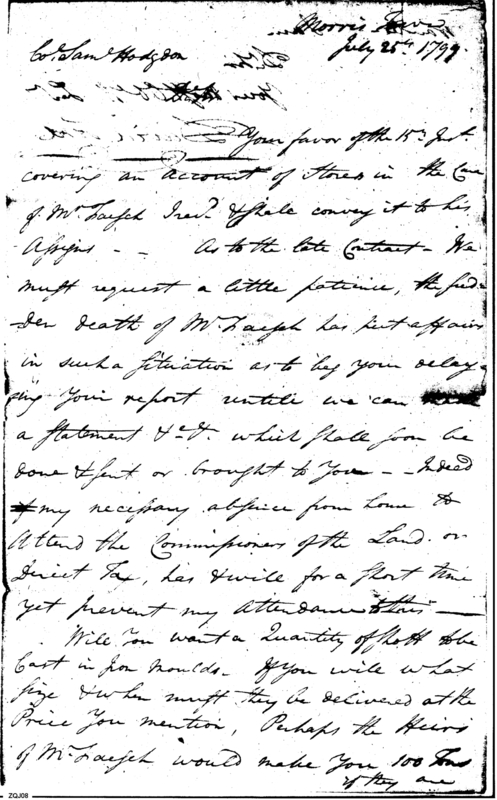 Morris Town
July 25th 1799
Col. Saml. Hodgdon
Your favor of the 15th Inst.
covering an Account of Stores in the Care
of Mr. Faesch I recd. & shall convey it to his
Assigns - - As to the late Contract - We
must request a little patience, the sud-
-den death of Mr. Faesch has put affairs
in such a situation as to beg your delay-
-ing Your report untill we can
a Statement &c. &. which shall soon be
done & sent or brought to You - - Indeed
my necessary absence from home to
Attend the Commissioners of the Land or
Direct Tax, has & will for a short time
yet prevent my Attendance to this -
Will You want a Quantity of Shott to be
Cast in Iron Moulds - If You will what
size & when must they be delivered at the
Price You mention, Perhaps the Heirs
of Mr. Faesch would make You 100 Tons
if they are
ZQJ08